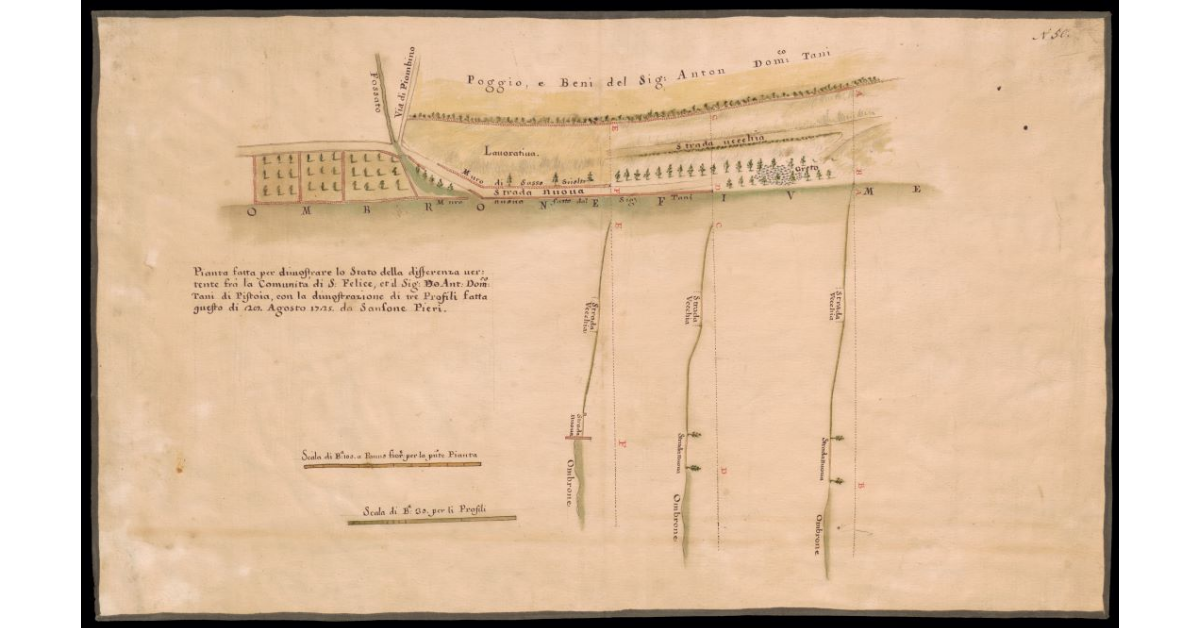 N 50.
Poggio, e Beni del Sig: Anton Dom:co Tani
Fossato
Via di Piombino
Lavorativa.
Strada vecchia
Greto
Muro di Sasso
Strada nuova
Muro nuovo fatto dal Sig: Tani
OMBRONE FIVME
A
C
E
B
D
F
Pianta fatta per dimostrare lo Stato della differenza ver:
tente frà la Comunita di S: Felice, et il Sig: Ant: Dom:co
Tani di Pistoia, con la dimostrazione di tre Profili fatta
questo di Agosto da Sansone Pieri.
E
C
A
Strada Vecchia
Strada Vecchia
Strada Vecchia
Strada nuova
Strada nuova
Strada nuova
F
D
B
Ombrone
Ombrone
Ombrone
Scala di per la Pianta
Scala di per li Profili